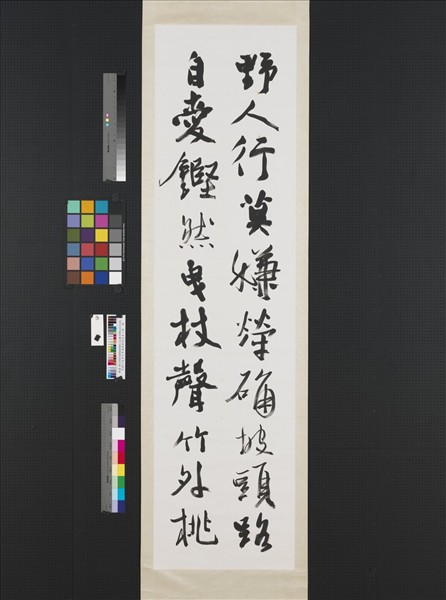 野人行莫嫌犖确坡頭路
自愛鏗然曳杖聲竹外桃